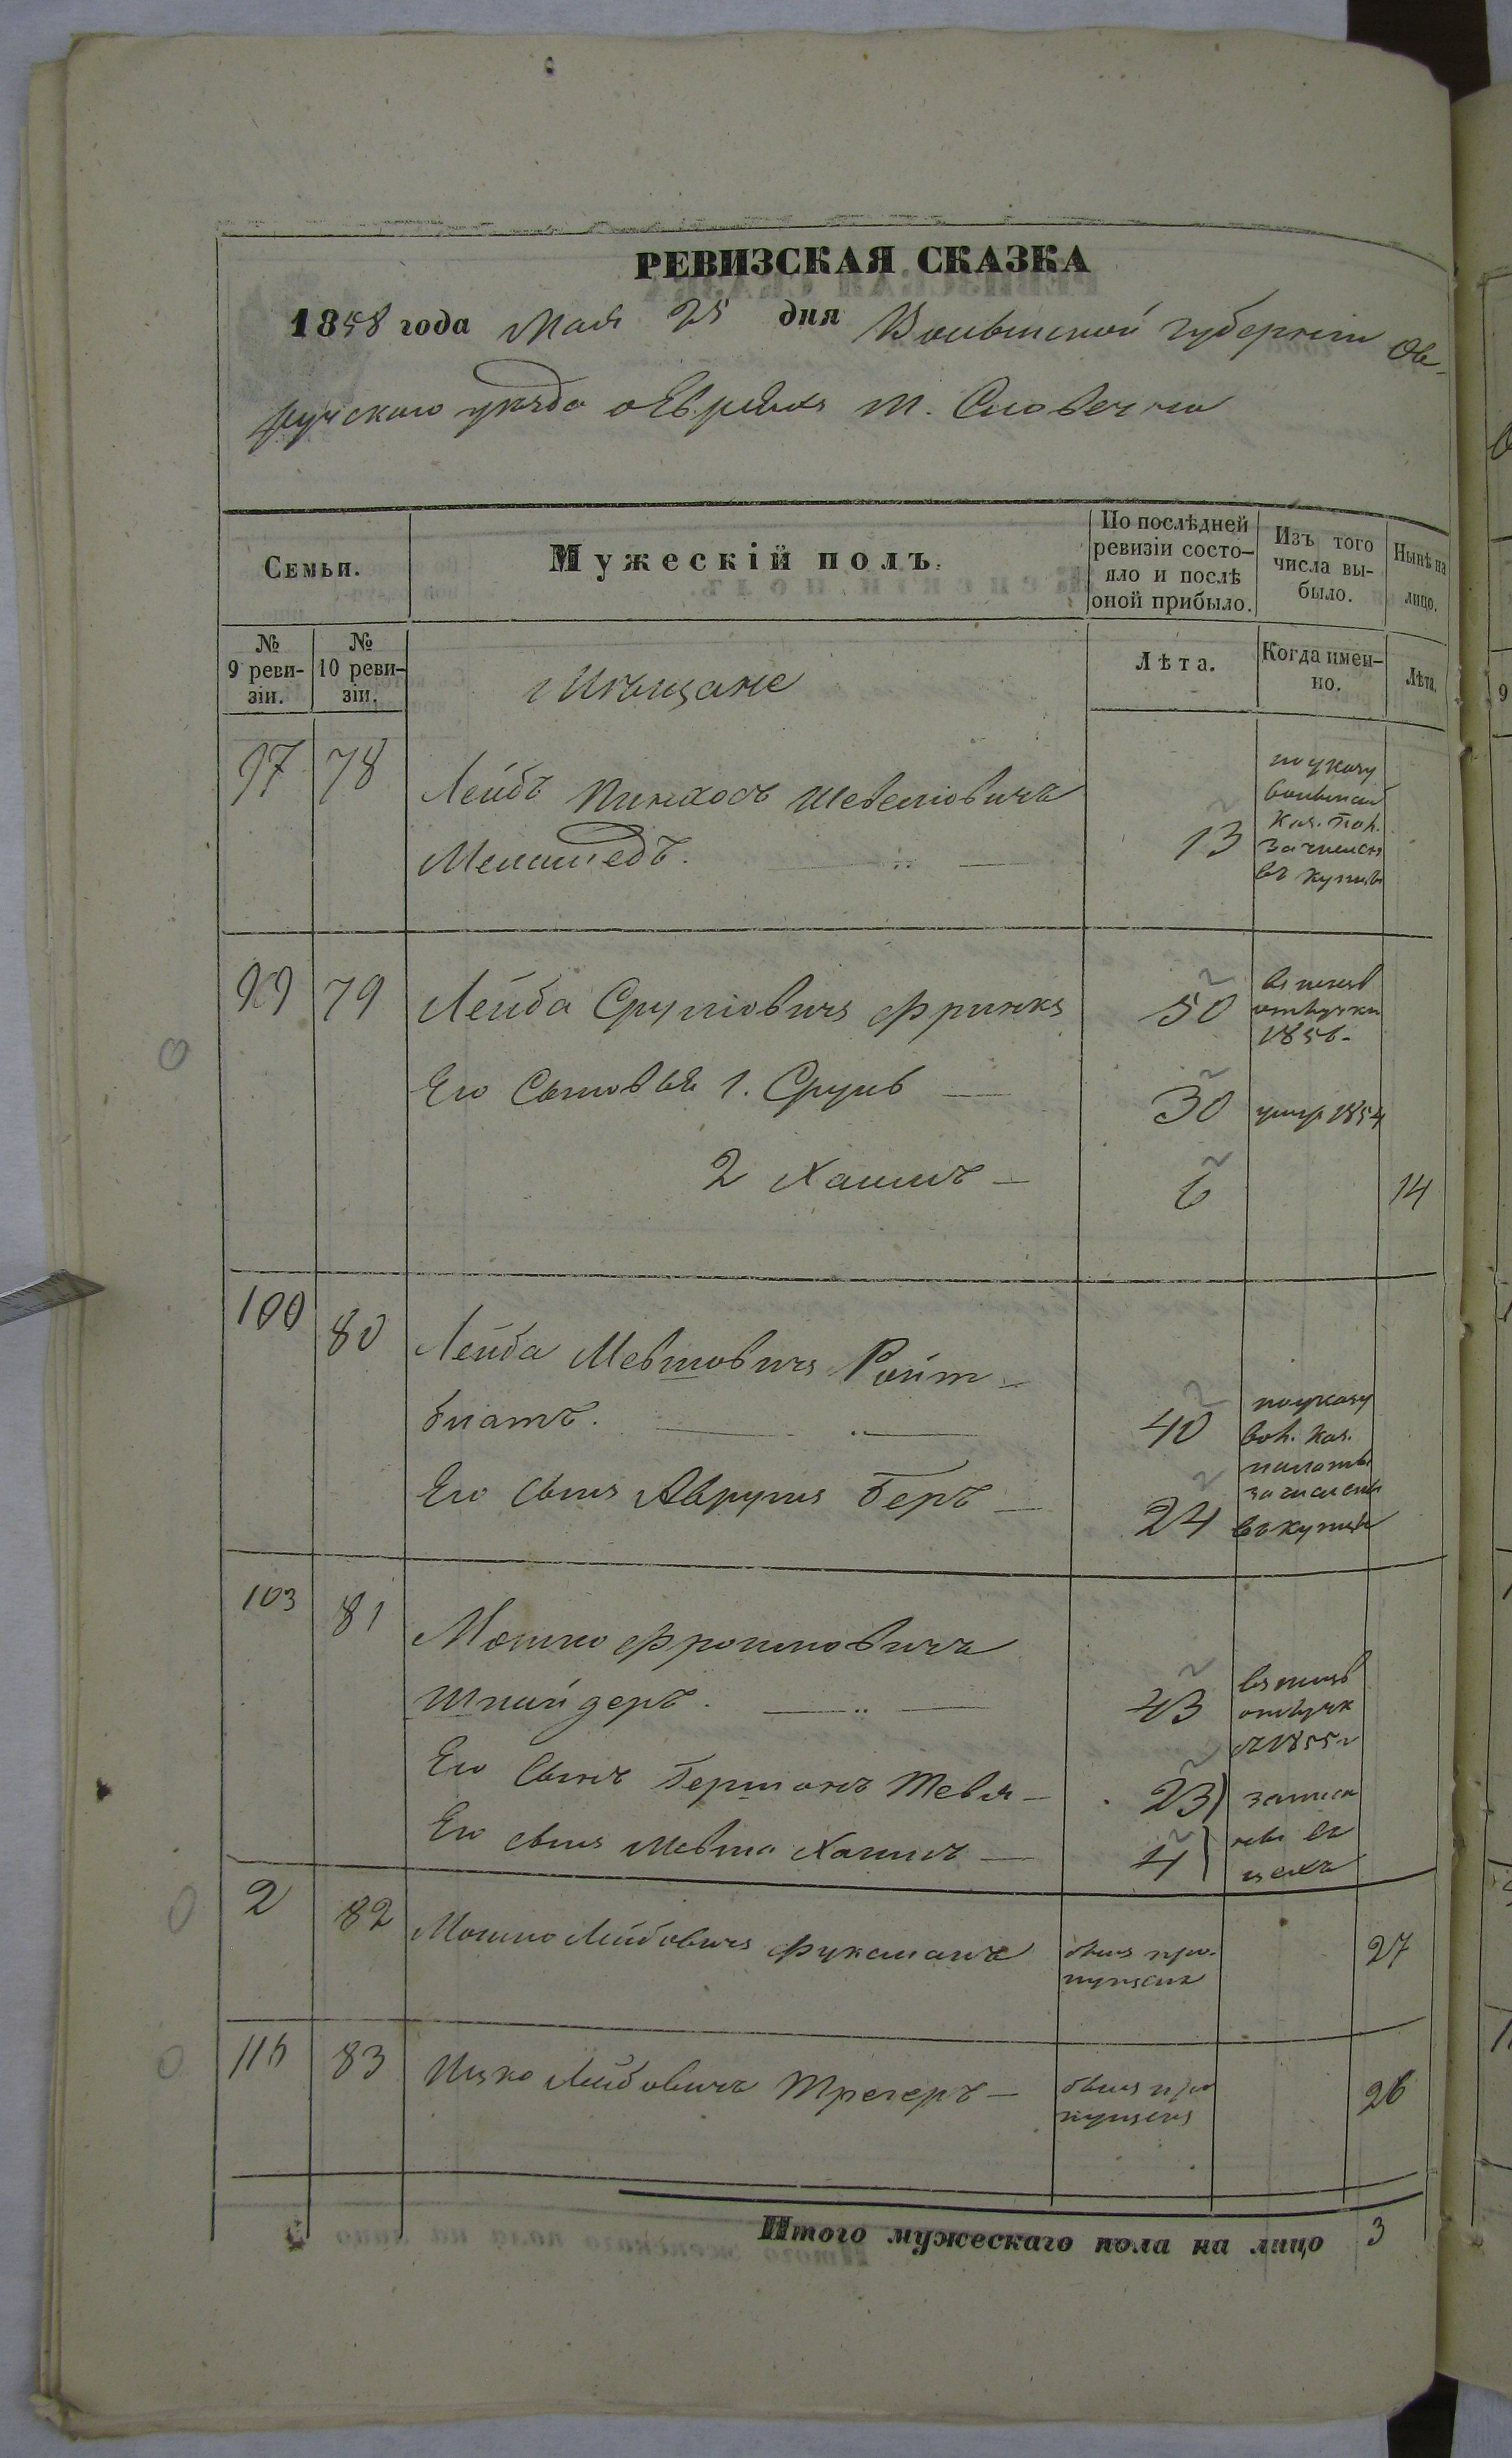 РЕВИЗСКАЯ СКАЗКА
1858 года Мая 25 дня Волынской губернии Ов-
ручского уѣзда о Евреяхъ м. Словечно
Семьи.
Мужескій полъ.
По послѣдней
ревизіи состо-
яло и послѣ
оной прибыло.
Изъ того
числа вы-
было.
Нынѣ на
лицо.
№
9 реви-
зіи.
№
10 реви-
зіи.
Мѣщане
Лѣта.
Когда имен-
но.
Лѣта.
97 78 Лейбъ Пинхосъ Шевелiовичъ
Меламедъ. 13
по указу
Волынской
Каз. Пал.
зачисленъ
въ купцы
99 79 Лейба Сруліовичъ Фринкъ 50
отлучки
1856
Его Сыновья 1. Сруль 30 умер 1854
2 Хаимъ 6 14
100 80 Лейба Мевшовичъ Ройт-
блатъ. 40
Его сынъ Аврумъ Беръ 24
по указу
Вол. Каз.
палаты
зачислены
въ купцы
103 81 Мошко Фроимовичъ
Шнайдеръ. 43
отлучк
1855
Его Сынъ Бершонъ Тевья 23
Его сынъ Мевша Хаимъ 4
записа
ны въ
цехъ
2 82 Мошко Лейбовичъ Фуксманъ былъ про-
пущенъ 27
83 Ицко Лейбовичъ Трегеръ былъ про
пущенъ 26
Итого мужескаго пола на лицо 3